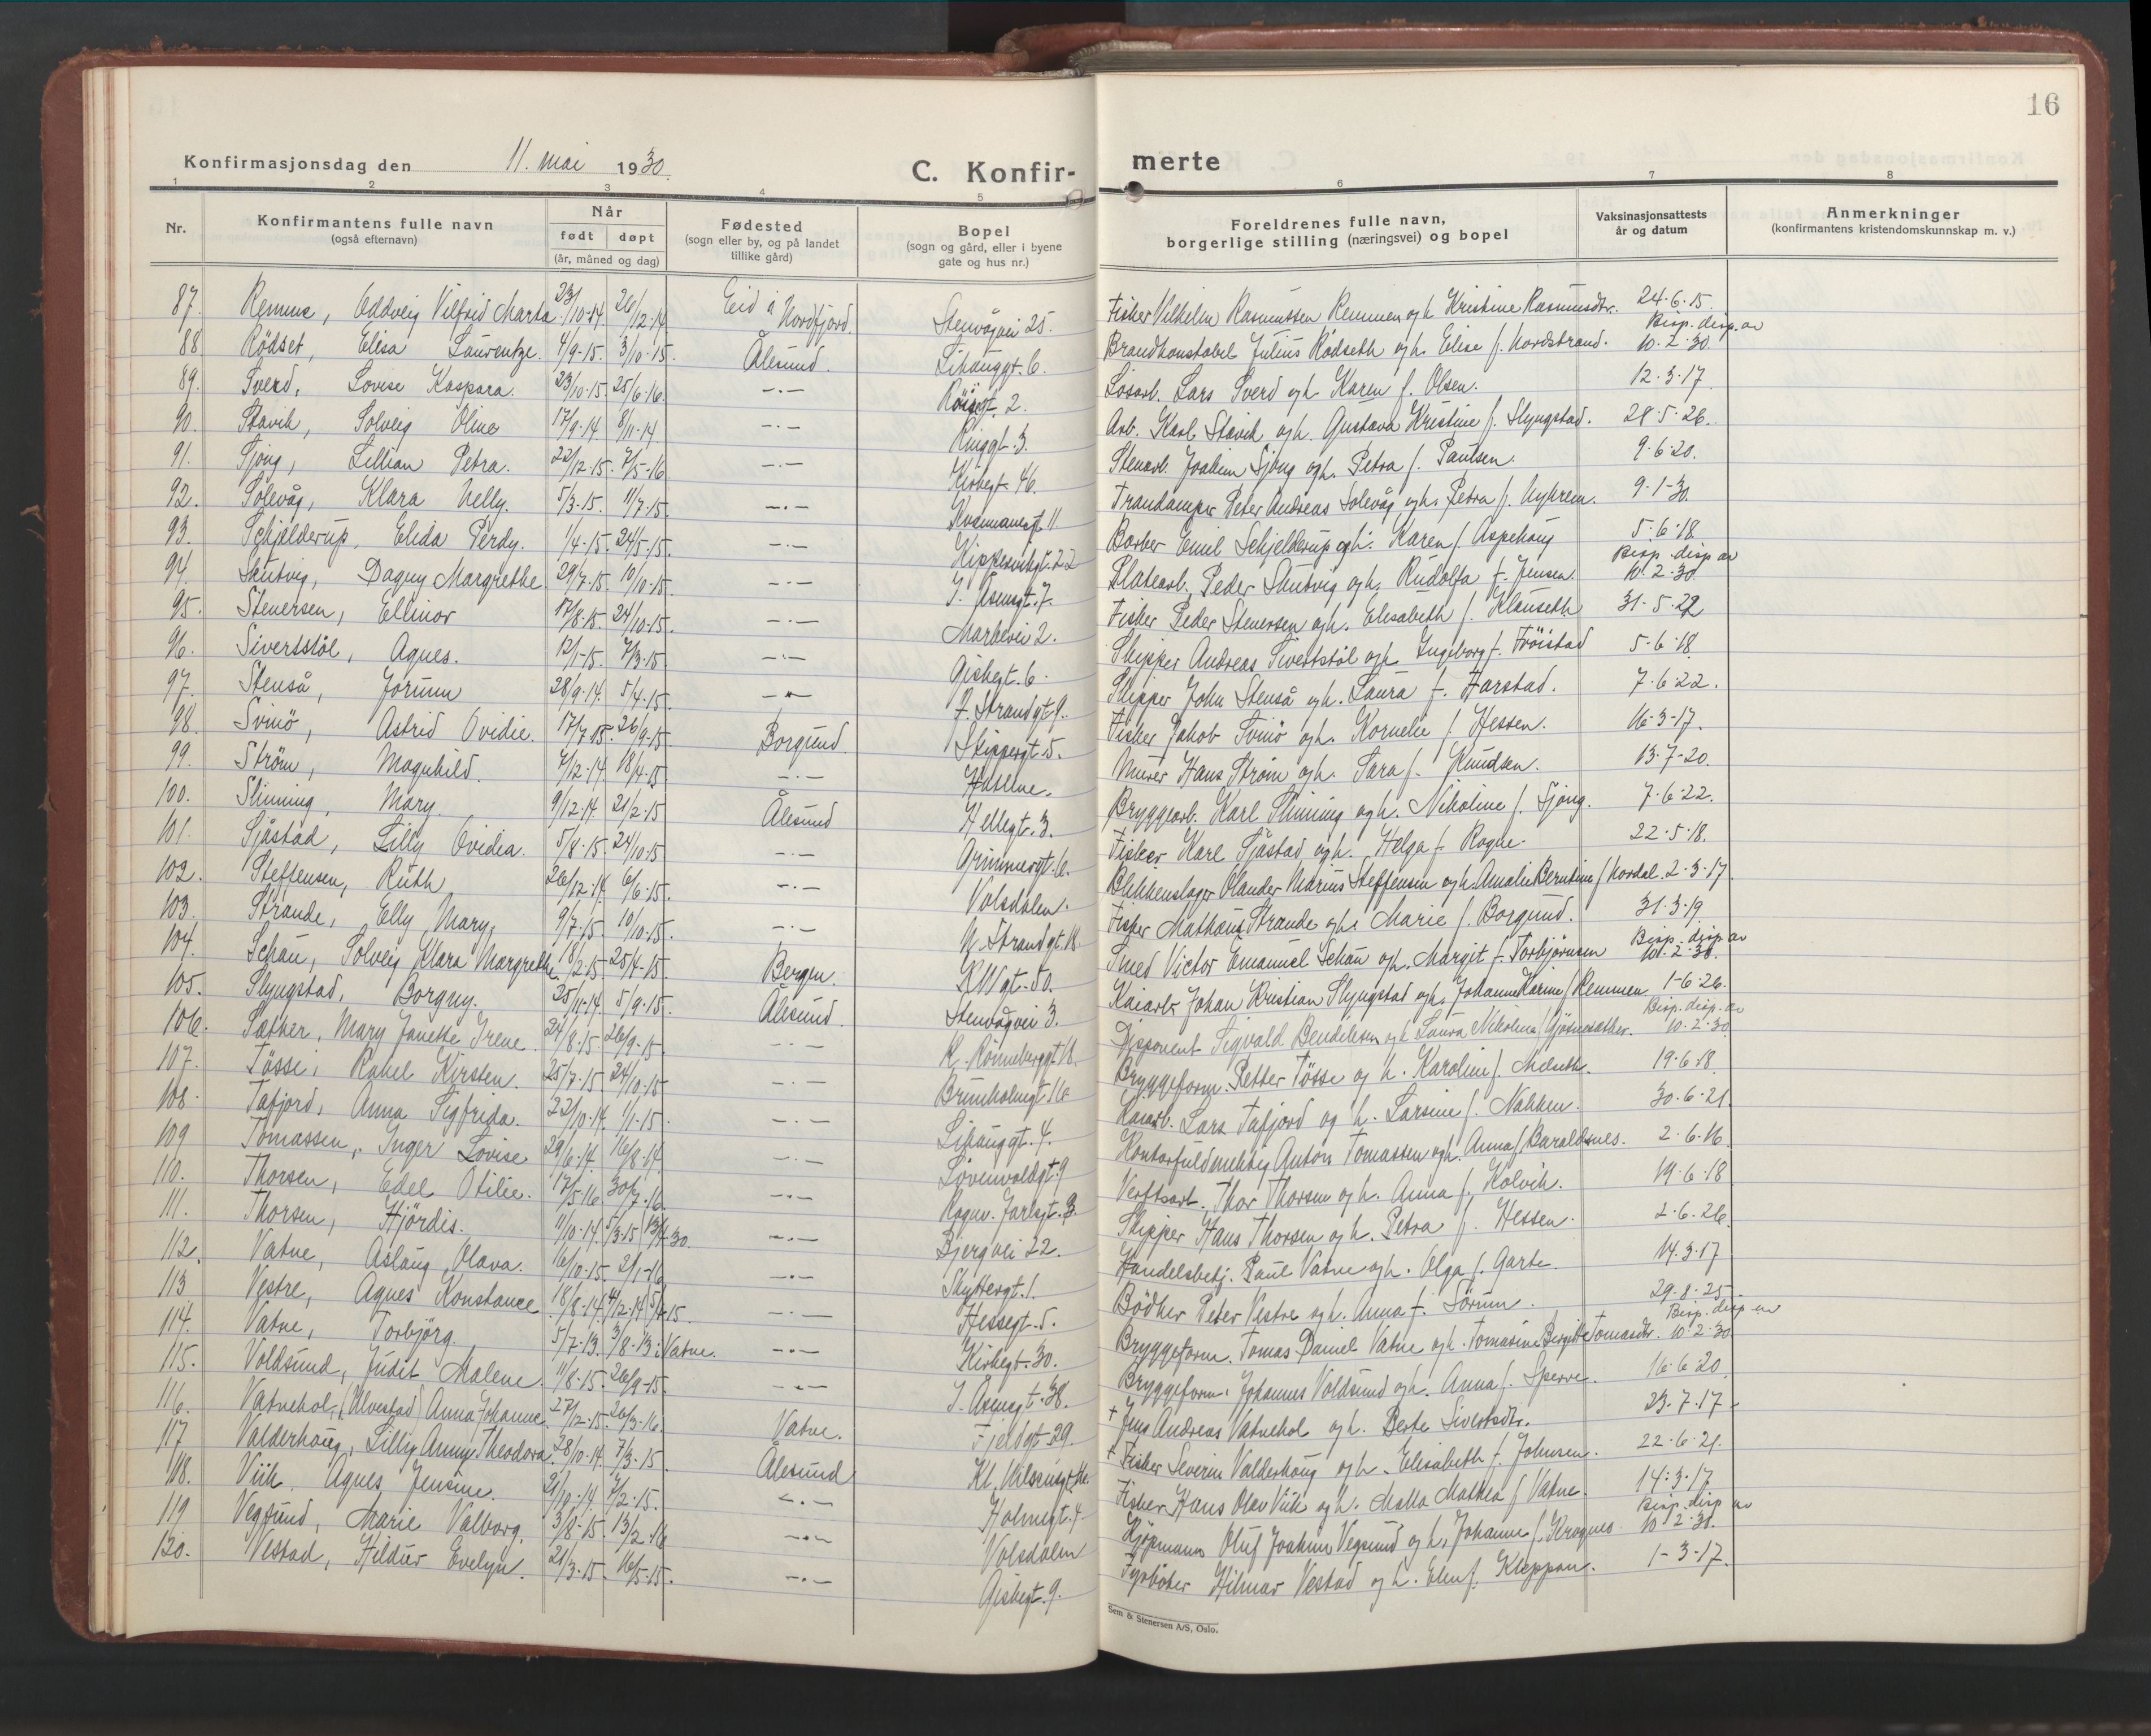 16
Konfirmasjonsdag den 11. mai 1930.
C. Konfir-
merte
1 2 3 4 5 6 7 8
Nr.
Konfirmantens fulle navn
(også efternavn)
Når
født døpt
(år, måned og dag)
Fødested
(sogn eller by, og på landet
tillike gård)
Bopel
(sogn og gård, eller i byene
gate og hus nr.)
Foreldrenes fulle navn,
borgerlige stilling (næringsvei) og bopel
Vaksinasjonsattests
år og datum
Anmerkninger
(konfirmantens kristendomskunnskap m. v.)
87. Remme, Oddveig Vilfrid Marta 23/10-14. 26/12-14 Eid i Nordfjord. Stenvågvei 25. Fisker Vilhelm Rasmussen Remmen og h. Kristine Rasmusdtr. 24-6-15.
88 Rødset, Elisa Laurentze. 4/9-15. 3/10-15. Ålesund. Lihauggt. 6. Brandkonstabel Julius Rødseth og h. Elise f. Nordstrand. Bisp. disp. av 10-2-30.
89. Sverd, Lovise Kaspara. 23/10-15. 25/6-16. -.- Røisgt. 2. Løsarb. Lars Sverd og h. Karen f. Olsen. 12-3-17.
90. Stavik, Solveig Oline 17/9-14. 8/11-14 -.- Ringgt. 3. Arb. Karl Stavik og h. Gustava Kristine f. Slyngstad. 28-5-26.
91. Sjong, Lillian Petra. 22/12-15. 7/5-16 -.- Kirkegt. 46. Stenarb. Joakim Sjong og h. Petra f. Paulsen. 9-6-20.
92. Solevåg, Klara Nelly. 5/3-15. 11/7-15. -.- Kvennanesgt. 11 Trandamper Peter Andreas Solevåg og h. Petra f. Nyhrem. 9-1-30.
93. Schjelderup, Elida Perdy. 1/4-15. 24/5-15. -.- Kippervikgt. 22 Barber Emil Schjelderup og h. Karen f. Aspehaug 5-6-18.
94. Skutvig, Dagny Margrethe. 29/7-15. 10/10-15. -.- I. Åsensgt. 7. Platearb. Peder Skutvig og h. Rudolfa f. Jensen. Bisp. disp av 10-2-30.
95. Stenersen, Ellinor 17/8-15. 24/10-15. -.- Markevei 2. Fisker Peder Stenersen og h. Elisabeth f. Klauseth 31-5-22
96. Sivertstøl, Agnes. 12/1-15. 7/3-15 -.- Giskegt. 6. Skipper Andreas Sivertstøl og h. Ingeborg f. Frøistad 5-6-18.
97. Stenså, Jorunn 28/9-14. 5/4-15. -.- F. Strandgt. 9. Skipper John Stenså og h. Laura f. Farstad. 7-6-22.
98. Svinø, Astrid Ovidie. 17/7-15. 26/9-15 Borgund. Skippergt. 5. Fisker Jakob Svinø og h. Kornelie f. Hessen. 16-3-17.
99. Strøm, Magnhild. 7/12-14. 18/4-15 -.- Hatlene. Murer Hans Strøm og h. Sara f. Knudsen. 13-7-20.
100. Slinning, Mary. 9/12-14. 21/2-15 Ålesund Hellegt. 3. Bryggearb. Karl Slinning og h. Nikoline f. Sjong. 7-6-22.
101. Sjåstad, Lilly Ovidia. 5/8-15. 24/10-15 -.- Grimmergt. 6. Fisker Karl Sjåstad og h. Helga f. Rogne. 22-5-18.
102. Steffensen, Ruth 26/12-14. 6/6-15. -.- Volsdalen. Blikkenslager Olander Marius Steffensen og h. Amalie Berntine f. Nordal. 2-3-17.
103. Strande, Elly Mary. 9/7-15 10/10-15. -.- N. Strandgt. 18. Fisker Mathæus Strande og h. Marie f. Borgund. 31-3-19.
104. Schau, Solveig Klara Margrethe 18/2-15 25/4-15. Bergen. KWgt. 50. Smed Victor Emanuel Schau og h. Margit f. Torbjørnsen Bisp. disp av 10-2-30.
105. Slyngstad, Borgny. 25/11-14. 5/9-15. Ålesund. Stenvågvei 3. Kaiarb. Johan Kristian Slyngstad og h. Johanne Karine f. Remmen 1-6-26.
106. Sæther, Mary Janette Irene 24/8-15. 26/9-15. -.- R. Rønneberggt. 18. Disponent Sigvald Bendiksen og h. Laura Nikolina f. Gjøsnesæther. Bisp. disp. av 10-2-30
107. Tøsse, Rakel Kirsten. 25/7-15 24/10-15 -.- Brunholmgt. 16 Bryggeform. Petter Tøsse og h. Karoline f. Melseth. 19-6-18.
108. Tafjord, Anna Sigfrida. 22/10-14. 1/1-15. -.- Lihauggt. 4. Kaiarb. Lars Tafjord og h. Larsine f. Nakken. 30-6-21.
109 Tomassen, Inger Lovise 29/6-14. 16/8-14. -.- Løvenvoldgt. 9 Kontorfuldmektig Anton Tomassen og h. Anna f. Haraldsnes. 2-6-16.
110. Thorsen, Edel Otilie. 17/5-16 30/7-16. -.- Ragnv. Jarlsgt. 3. Verftsarb. Thor Thorsen og h. Anna f. Kolvik. 19-6-18
111. Thorsen, Hjørdis. 11/10-14. 5/3-15 13/4-30. -.- Bjergvei 22. Skipper Hans Thorsen og h. Petra f. Hessen. 2-6-26.
112. Vatne, Aslaug Olava. 16/10-15. 2/1-16 -.- Skyttergt. 1. Handelsbetj. Paul Vatne og h. Olga f. Garte. 14-3-17
113 Vestre, Agnes Konstance 18/8-14. 4/12-14 5/4-15. -.- Hessegt. 5. Bødker Peter Vestre og h. Anna f. Sørum. 29-8-25.
114. Vatne, Torbjørg. 5/7-13. 3/8-13 i Vatne. -.- Kirkegt. 30. Bryggeform. Tomas Daniel Vatne og h. Tomasine Bergitte Tomasdtr. Bisp. disp av 10-2-30
115. Voldsund, Judit Malene. 11/8-15. 26/9-15. -.- I. Åsensgt. 38. Bryggeform. Johannes Voldsund og h. Anna f. Sperre. 16-6-20.
116. Vatnehol, (Ulvestad) Anna Johanne. 27/12-15. 26/3-16. Vatne. Fjeldgt. 29. + Jens Andreas Vatnehol og h. Berte Sivertsdtr. 23-7-17
117 Valderhaug, Lilly Anny Theodora. 28/10-14. 7/3-15. Ålesund Kl. Nilsensgt. + Fisker Severin Valderhaug og h. Elisabeth f. Johnsen. 22-6-21.
118. Viik, Agnes Jensine. 21/10-14. 7/2-15. -.- Holmegt. 4. Fisker Hans Olav Viik og h. Malla Mathea f. Vatne. 14-3-17
119 Vegsund, Marie Valborg. 3/8-15 13/2-16 -.- Volsdalen Kjøpmann Oluf Joakim Vegsund og h. Johanne f. Kragnes. Bisp. disp av 10-2-30.
120. Vestad, Hildur Evelyn. 21/3-15. 16/5-15. -.- Giskegt. 9. Fyrbøter Hilmar Vestad og h. Elen f. Kleppan. 1-3-17.
Sem & Stenersen A/S, Oslo.